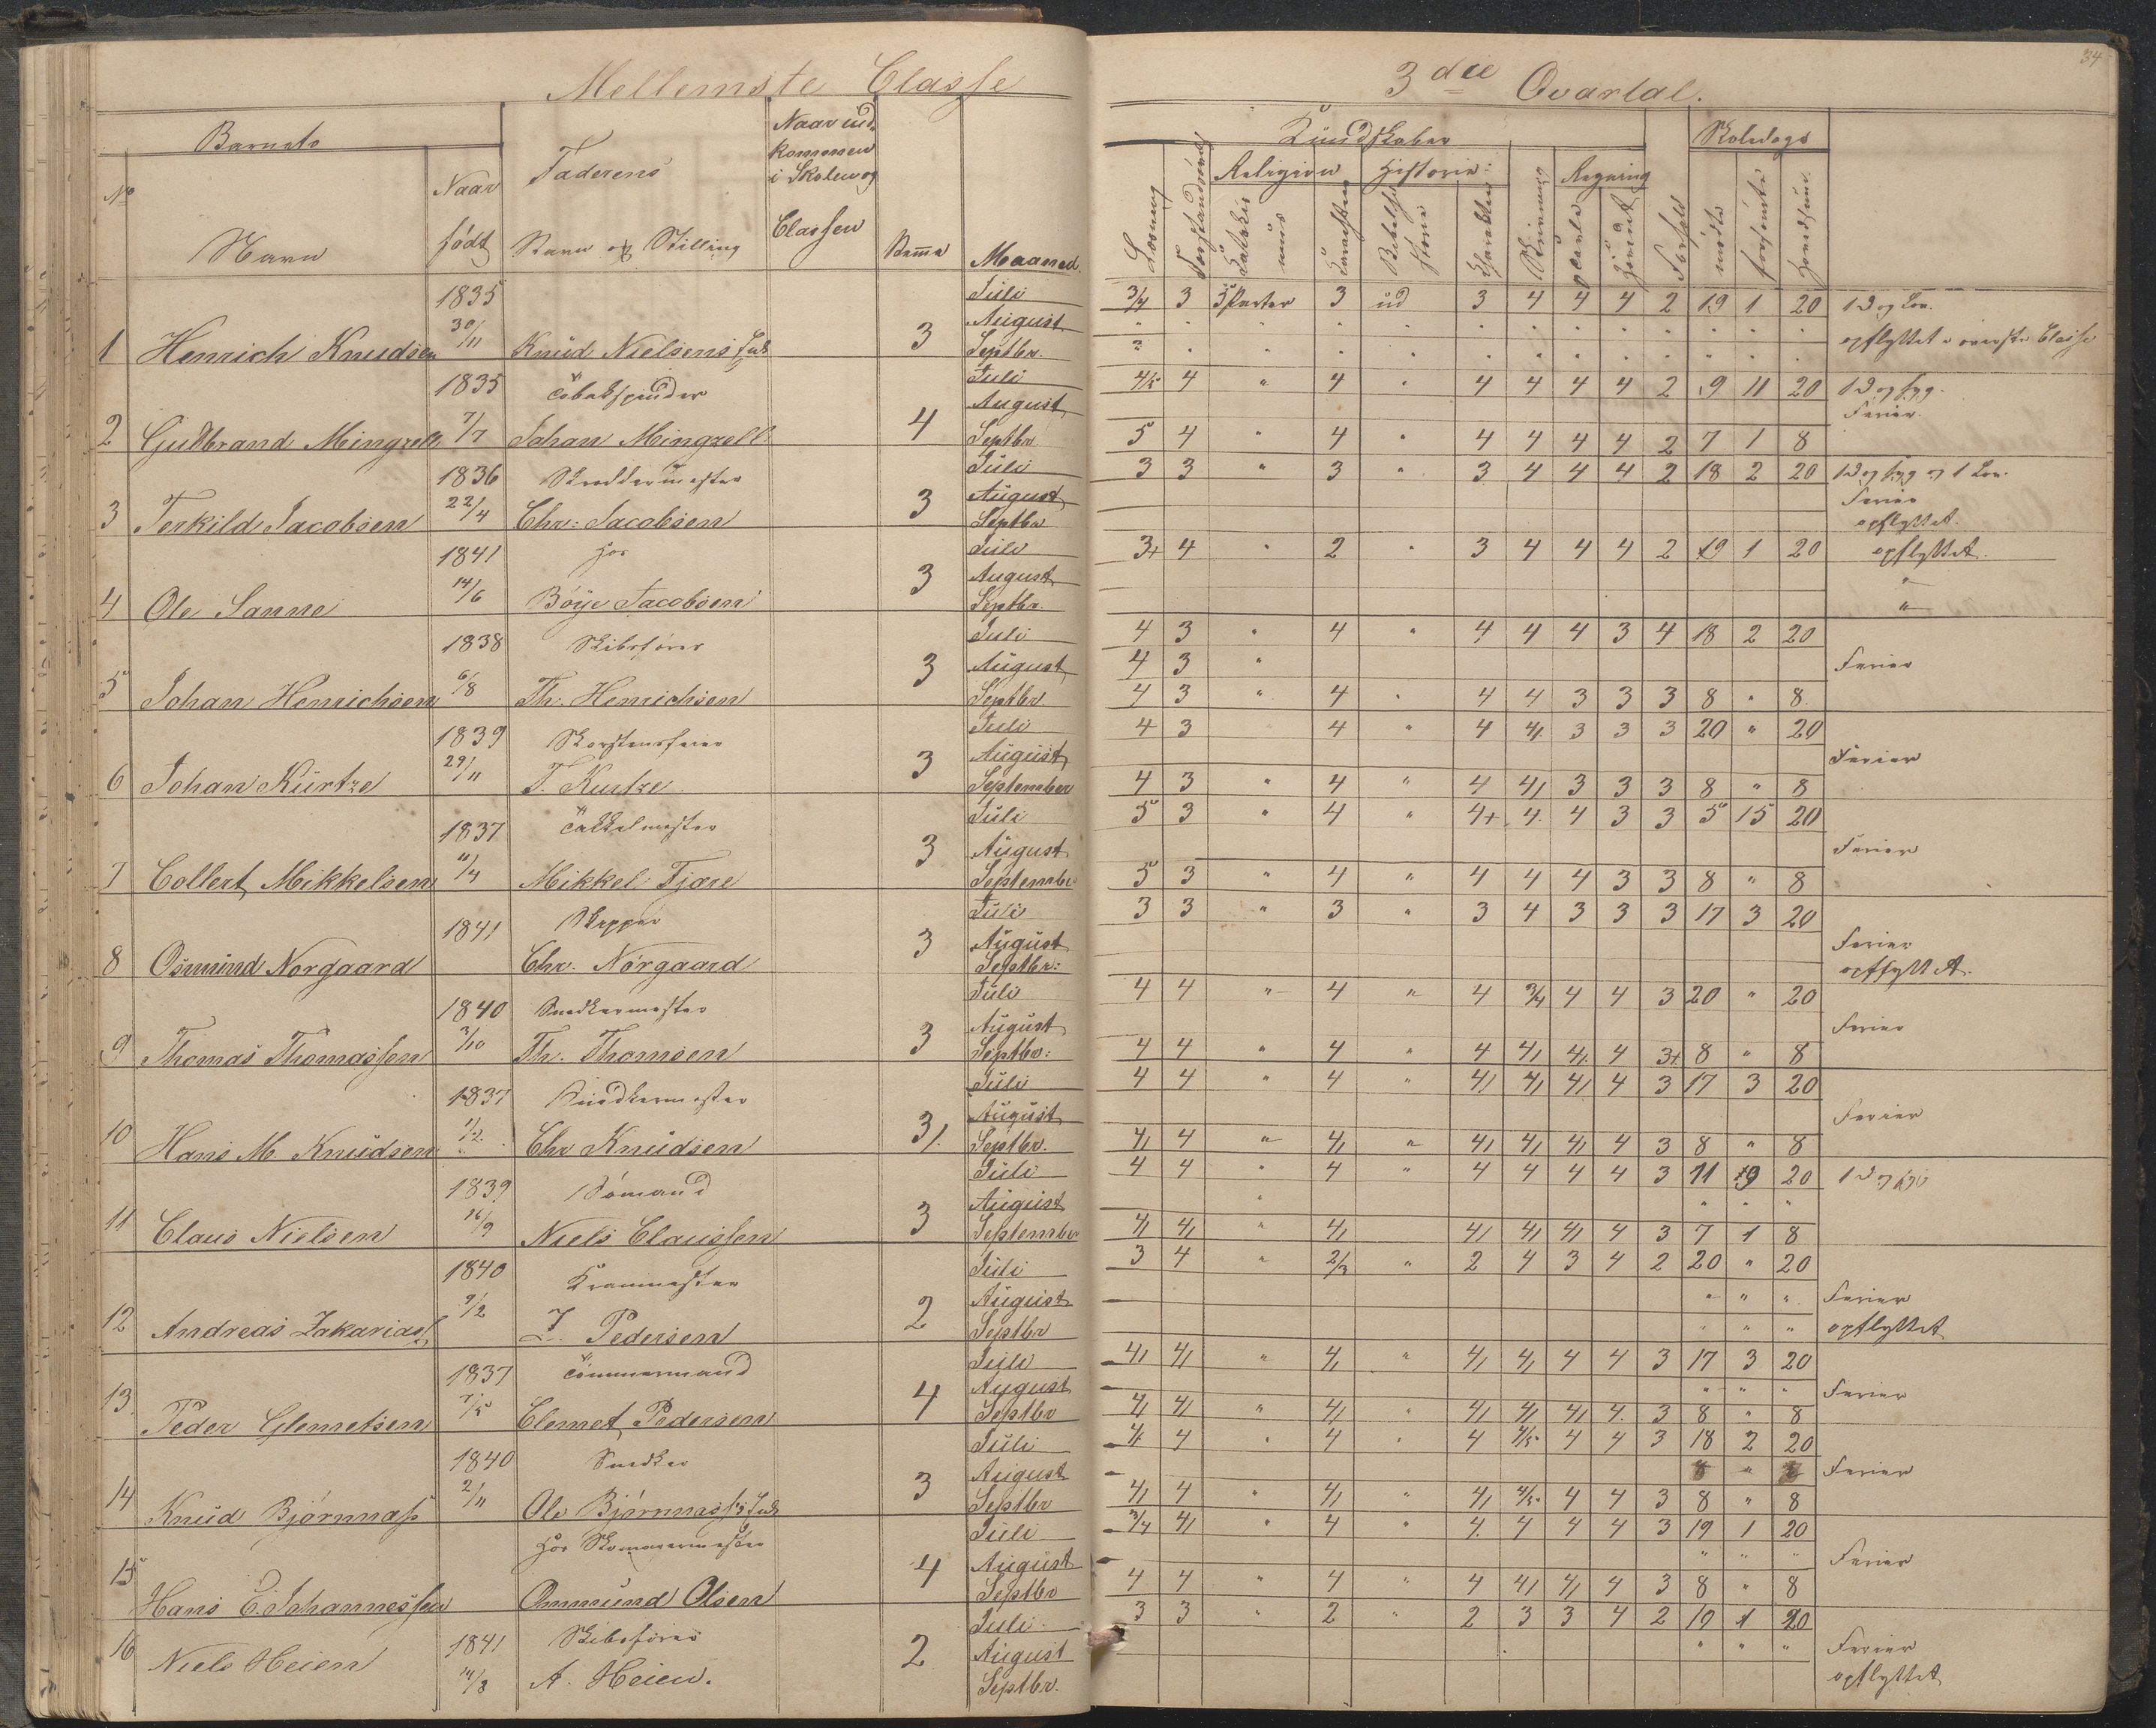 Mellemste Classe
3die Qvartal.
34
Barnets
No
Navn
Naar født
Faderens
Navn og Stilling
Naar ind-
kommen
i Skolen og
Classen
Maaned.
Kundskaber
Læsning
Religion
Historie:
Skrivning
Regning
Skoledage
mødte
forsømte
1 Henrich Knudsen 1835 30/11 Knud Nielsens 3
Juli 3/4 3 3 Parter 3 ud 3 4 4 4 2 19 1 20
August
Septbr. opflyttet i øverste Classe
2 Gudbrand Mingrell 1835 7/7 Tobakspinder Johan Mingzell 4
Juli 4/5 4 " 4 " 4 4 4 4 2 9 11 20
August Ferier
Septbr 5 4 " 4 " 4 4 4 4 2 7 1 8
3 Terkild Jacobsen 1836 22/4 Skreddermester Chr: Jacobsen 3
Juli 3 3 " 3 " 3 4 4 4 2 18 2 20
August Ferier
Septbr opflyttet.
4 Ole Sanne 1841 14/6 hos Böye Jacobsen 3
Juli 3+ 4 " 2 " 3 4 4 4 2 19 1 20 opflyttet.
August "
Septbr. "
5 Johan Henrichsen 1838 6/8 Skibsfører Th. Henrichsen 3
Juli 4 3 " 4 " 4 4 4 3 4 18 2 20
August 4 3 " Ferier
Septbr 4 3 " 4 " 4 4 3 3 3 8 " 8
6 Johan Kürtze 1839 29/11 Skorstensfeier T. Kurtze 3
Juli 4 3 4 " 4 4 3 3 3 20 " 20
August Ferier
September 4 3 " 4 " 4 4/1 3 3 3 8 " 8
7 Collert Mikkelsen 1837 11/4 Takkelmester Mikkel Fjære 3
Juli 5 3 " 4 " 4+ 4 4 3 3 5 15 20
August Ferier
September 5 3 " 4 " 4 4 4 3 3 8 " 8
8 Osmund Norgaard 1841 Skipper Chr. Nørgaard 3
Juli 3 3 " 3 " 3 4 3 3 3 17 3 20
August Ferier
Septbr: opflyttet.
9 Thomas Thomassen 1840 3/10 Snedkermester Th. Thomsen 3
Juli 4 4 " 4 " 4 3/4 4 4 3 20 " 20
August Ferier
Septbr: 4 4 " 4 " 4 4/1 4/1 4 3+ 8 " 8
10 Hans M Knudsen 1837 1/2 Snedkermester Chr Knudsen 3/.
Juli 4 4 " 4 " 4/1 4/1 4/1 4 3 17 3 20
August Ferier
Septbr. 4/1 4 " 4/1 " 4/1 4/1 4/1 4 3 8 " 8
11 Claus Nielsen 1839 16/9 Sömand Niels Claussen 3
Juli 4 4 " 4 " 4 4 4 4 3 11 9 20
August " " " "
September 4/1 4/1 " 4/1 4/1 4/1 4/1 4 3 7 1 8
12 Andreas Zakarias 1840 9/2 Kranmester Z. Pedersen 2
Juli 3 4 " 2/3 " 2 4 3 4 2 20 " 20
August " " " Ferier
Septbr " " " opflyttet
13 Peder Clemetsen 1837 7/5 Tömmermand Clemet Pedersen 4
Juli 4/1 4/1 " 4/1 " 4/1 4/1 4 4 3 17 3 20
August " " " Ferier
Septbr 4/1 4/1 " 4/1 " 4/1 4/1 4/1 4. 3 8 " 8
14 Knud Bjørnnass 1840 2/11 Snedker Ole Bjørnnass's 3
Juli 4 4 " 4 " 4 4/5 4 4 3 18 2 20
August Ferier
Septbr 4/1 4 " 4/1 " 4/1 4/5 4 4 3 8 " 8
15 Hans C. Johannessen hos Skomagermester Ommund Olsen 4
Juli 3/4 4/1 " 4 " 4 4 4 4 3 19 1 20
August " " " Ferier
Septbr 4 4 " 4 " 4 4/1 4/1 4 3 8 " 8
16 Niels Heien 1841 14/3 Skibsfører A. Heien. 2
Juli 3 3 " 2 " 2 3 3 4 2 19 1 20
August " " " Ferier
Septbr. opflyttet